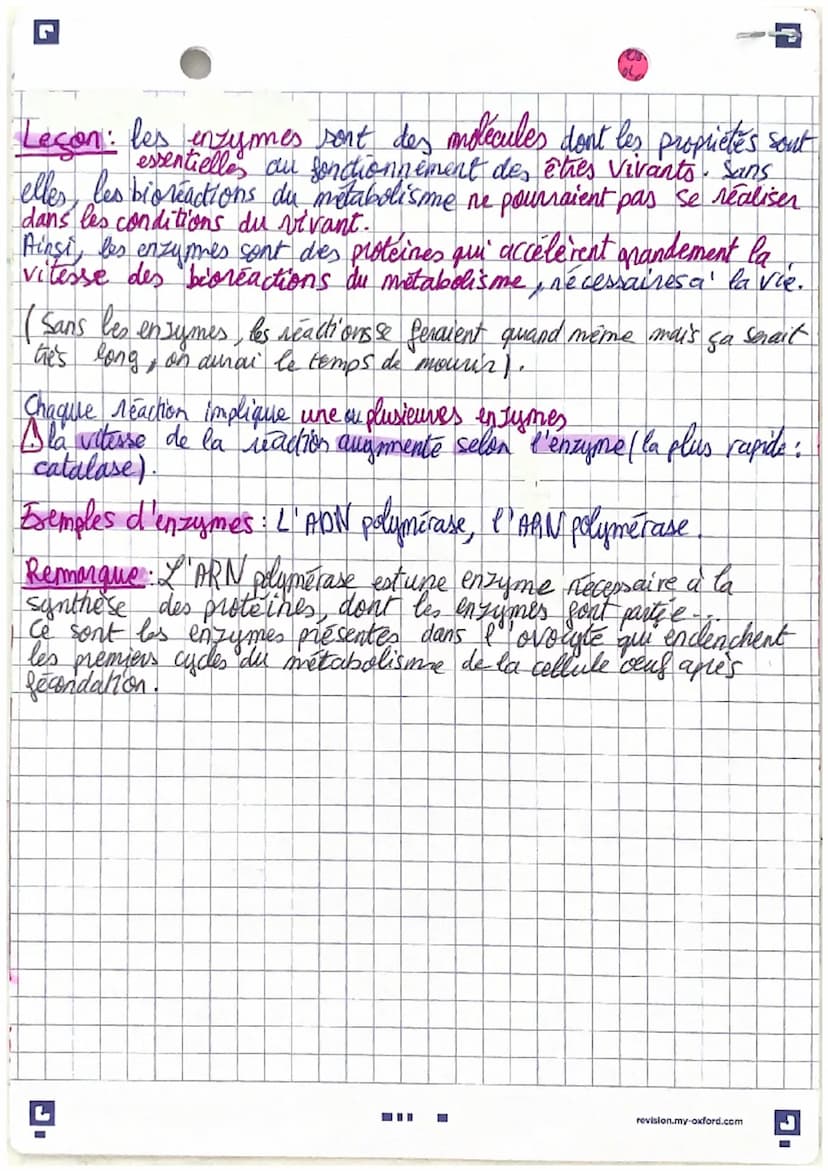 Leçon : les enzymes sont des molécules dont les propriétés sont
essentielles au fonctionnement des êtres vivants. Sans
elles, les bioréactions du métabolisme ne pourraient pas se réaliser
dans les conditions du vivant.
Ainsi, les enzymes sont des protéines qui accélèrent grandement la
vitesse des bioréactions du métabolisme, nécessaires à la vie.
(Sans les enzymes, les réactions se feraient quand même mais ça serait
très long, on aurai le temps de mourir).
Chaque réaction implique une ou plusieures enzymes
⚠ la vitesse de la réaction augmente selon l'enzyme (la plus rapide :
catalase).
Exemples d'enzymes : L'ADN polymérase, l'ARN polymérase.
Remarque : L'ARN polymérase est une enzyme nécessaire à la
synthèse des protéines, dont les enzymes font partie...
Ce sont les enzymes présentes dans l'ovocyte qui enclenchent
les premiers cycles du métabolisme de la cellule oeuf après
fécondation.
revision.my-oxford.com